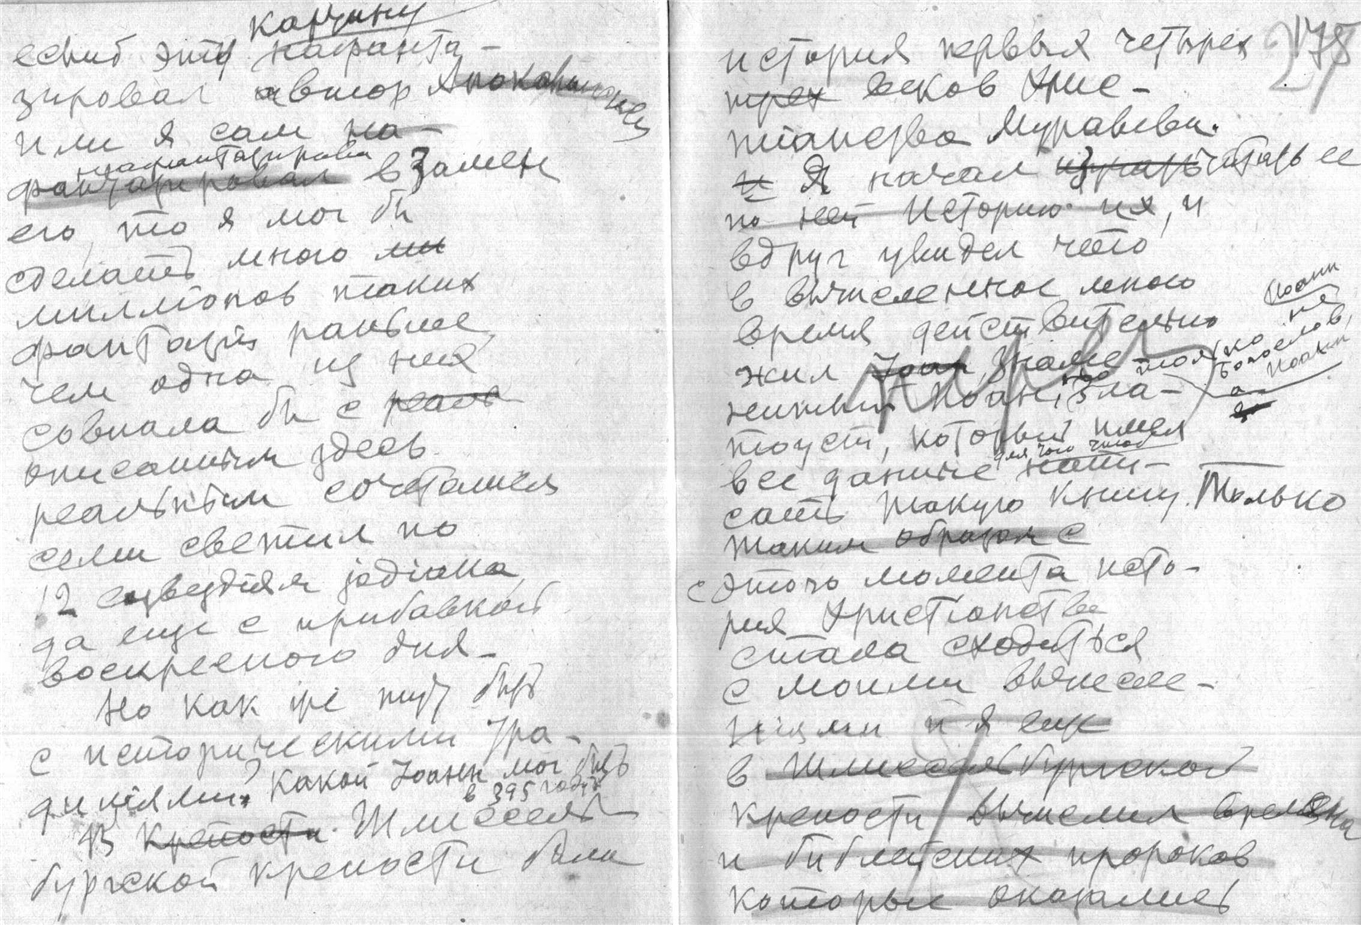 картину
если б эту нафанта-
зировал автор Апокалипсиса
или я сам на-
нафантазировал
фантазировал взамен
его, то я мог бы
сделать много ми
миллионов таких
фантазій раньше,
чем одна из них
совпала бы с реаль
описанным здесь
реальным сочетанием
семи светил по
12 созвездіям зодіака,
да еще с прибавкой
воскресного дня.
Но как же тут быть
с историческими тра-
диціями? Какой Іоанн мог быть
в 395 году?
В крепости Шлиссель
бургской крепости были
275
история первых четырех
трех веков Хрис-
тианства Муравьева.
и Я начал читать ее
по ней историю их, и
вдруг увидел что
в вычисленное мною
время действительно
жил Іоан знаме только
нитый Іоанн Зла-
тоуст, который имел
для того чтоб
все данные напи-
сать такую книгу. Только
таким образом с
с этого момента исто-
рия Христіанства
стала сходиться
с моими вычисле-
ніями и я еще
в Шлиссельбургской
крепости вычислил времена
и библейских пророков
которые оказались
Іоанн
не
Богослов,
а Іоанн